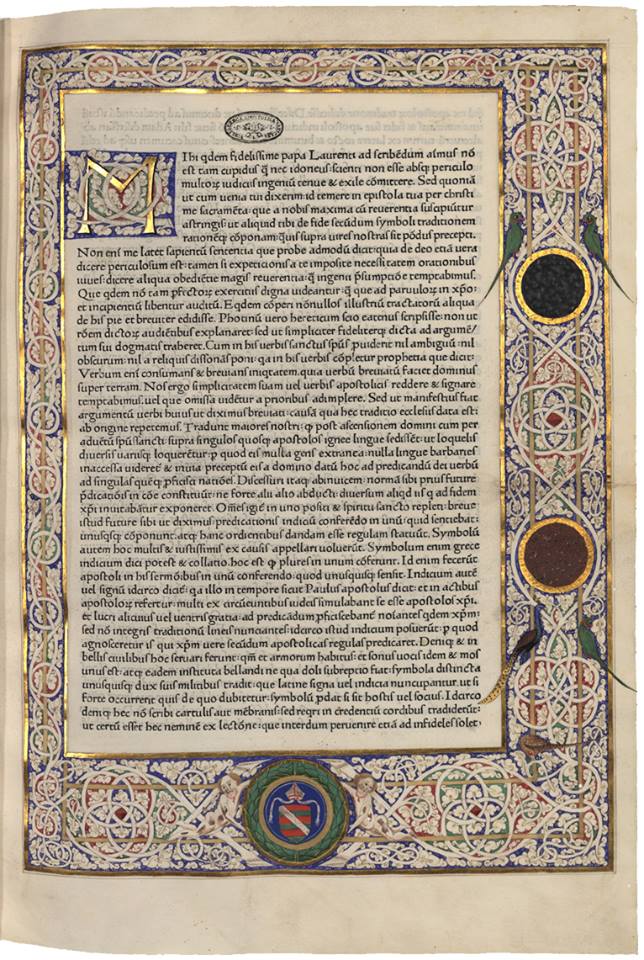 MIhi qdem fidelissime papa Laurenti ad scribēdum aīmus nō
est tam cupidus q̃ nec idoneus: scienti non esse absq; periculo
multoꝝ iudiciis ingeniū tenue & exile cōmittere. Sed quoniā
ut cum uenia tui dixerim īd temere in epistola tua per christi
me sacramēta: que a nobis maxima cū reuerentia suscipiūtur
astringis ut aliquid tibi de fide secūdum symboli traditionem
rationēq; cōponam: q̃uis supra uires nostras sit pōdus precepti.
Non eni me latet sapientū sententia que probe admodū dicit: quia de deo etiā uera
dicere periculosum est: tamen si expeticionis a te imposite necessitatem orationibus
iuues: dicere aliqua obedietie magis reuerentia: q̃ ingenii p̄sumptiōe temptabimus.
Que qdem nō tam p̄fectoꝝ exercitiis digna uideantur: q̃ que ad paruuloꝝ in xp̄o:
et incipientiū libentur auditū. Eqdem cōperi nōnullos illustriū tractatorū aliqua
de his pie et breuiter edidisse. Photinū uero hereticum scio eatenus scripsisse: non ut
rōem dictoꝝ audiētibus explanaret: sed ut simpliciter fideliterq; dicta ad argumē/
tum sui dogmatis traheret. Cum in his uerbis sanctus sp̄us puiderit nil ambiguū: nil
obscurum: nil a reliquis dissonās poni: qa in his uerbis cōpletur prophetia que dicit:
Verbum eni consumans & breuians iniqtatem. quia uerbū breuiatū faciet dominus
super terram. Nos ergo simplicitatem suam uel uerbis apostolicis reddere & signare
temptabimus: uel que omissa uidētur a prioribus adimplere. Sed ut manifestius fiat
argumentū uerbi huius ut diximus breuiati: causā qua hec traditio ecclesiis data est:
ab origine repetemus. Tradunt maiores nostri: ꝙ post ascensionem domini cum per
aduētū sp̄ussancti: supra singulos quosq; apostolos ignee lingue sedissēt: ut loquelis
diuersis uariisq; loquerētur: p quod eis nulla gens extranea: nulla lingue barbaries
inaccessa uideret̃ & inuia: preceptū eis a domino datū hoc ad predicandū dei uerbū
ad singulas queq; p̄ficisci natiōes. Discessuri itaq; abinuicem: normā sibi prius future
p̄dicatiōis in cōe constituūt: ne forte alii alio abducti: diuersum aliqd iis q ad fidem
xp̄i inuitabātur exponeret. Om̄es igit̃ in uno positi & spiritu sancto repleti: breue
istud future sibi ut diximus predicationis indiciū conferēdo in unū: quod sentiebat:
unusq̃sq; cōponunt: atq; hanc ordientibus dandam esse regulam statuūt. Symbolū
autem hoc multis & iustissimis ex causis appellari uoluerūt. Symbolum enim grece
indicium dici potest & collatio: hoc est ꝙ plures in unum cōferunt. Id enim fecerūt
apostoli in his sermōibus in unū conferendo: quod unusquisq; sensit. Indicium autē
uel signū idarco dicit̃: qa illo in tempore sicut Paulus apostolus dicit: et in actibus
apostoloꝝ refertur: multi ex circūeuntibus iudeis simulabant se esse apostolos xp̄i.
et lucri alicuius uel uentris gratia: ad predicādum p̄ficisebant̃: nosantes qdem xp̄m:
sed nō integris traditionū lineis nunciantes: idarco istud indicium posuerūt: p quod
agnosceretur is qui xp̄m uere secūdum apostolicas regulas predicaret. Deniq; & in
bellis ciuilibus hoc seruari ferunt: qm̄ et armorum habitus: et sonus uocis idem & mos
unus est: atq; eadem instituta bellandi: ne qua doli subreptio fiat: symbola distincta
unusquisq; dux suis militibus tradit: que latine signa uel indicia nuncupantur. ut si
forte occurrerit quis de quo dubitetur: symbolū p̄dat si sit hostis uel socius. Idarco
deniq; hec nō scribi cartulis aut mēbranis: sed reqri in credentiū cordibus tradidetūt:
ut certū esset hec neminē ex lectōne: que interdum peruenire etiā ad infideles solet: